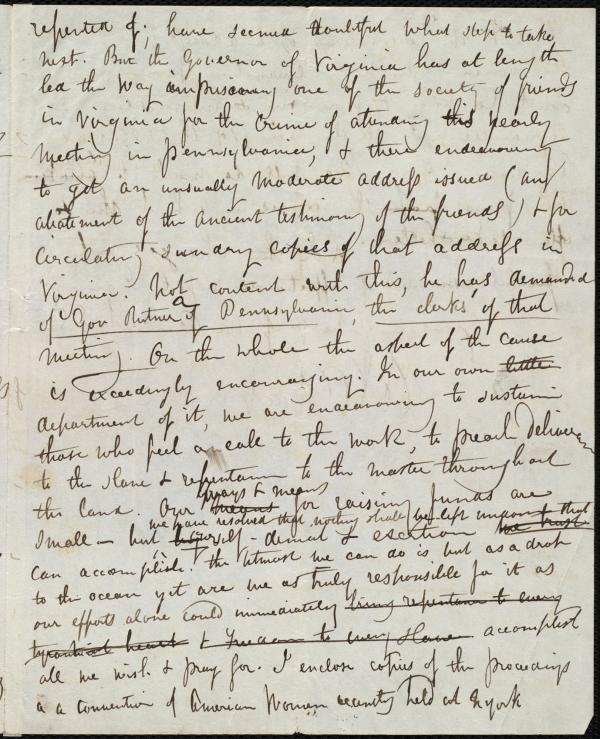 reported of; have seemed doubtful what step to take
next. But the Governor of Virginia has at length
led the way imprisoning one of the society of friends
in Virginia for the Crime of attending this yearly
Meeting in Pennsylvania, & there endeavouring
to get an unusually moderate address issued (an
abatement of the ancient testimony of the friends) & for
Circulating sundry copies of that address in
Virginia. Not content with this, he has demanded
of Gov Ritner of Pennsylvania, the clerks of that
meeting. On the whole the aspect of the cause
is exceedingly encouraging. In our own little
department of it, we are endeavouring to sustain
those who feel a call to the work, to preach deliverance
to the slave & repentance to the master throughout
the land. Our means ways & means for raising funds are
small - but we have resolved that nothing shall be left undone that
by self-denial & exertion we trust
can accomplish. The utmost we can do is but as a drop
to the ocean yet are we as truly responsible for it as
our efforts alone could immediately bring repentance to every
tyrannical heart & freedom to every slave accomplish
all we wish & pray for. I enclose copies of the proceedings
a a convention of American Women recently held at N York